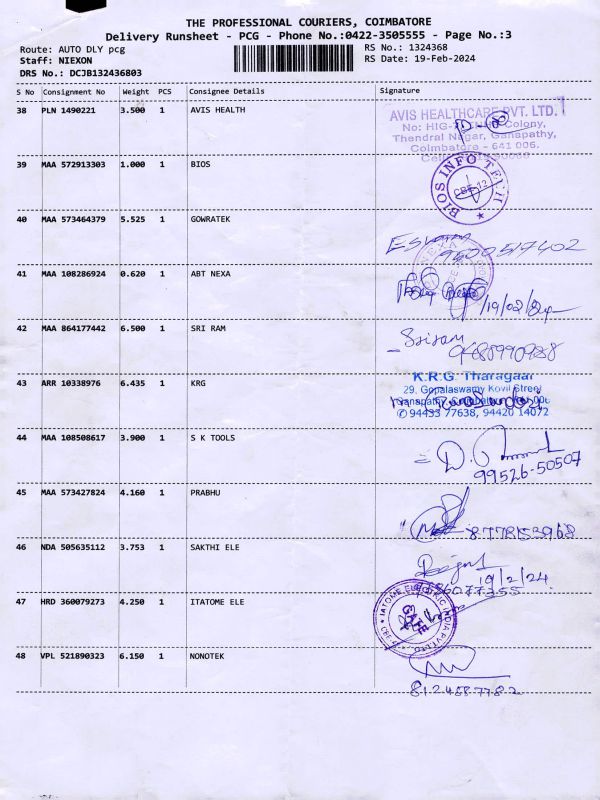 THE PROFESSIONAL COURIERS, COIMBATORE
Delivery Runsheet - PCG - Phone No.:0422-3505555 - Page No.:3
Route: AUTO DLY pcg
RS No.: 1324368
Staff: NIEXON
RS Date: 19-Feb-2024
DRS No.: DCJB132436803
S No Consignment No Weight PCS Consignee Details Signature
38 PLN 1490221 3.500 1 AVIS HEALTH
AVIS HEALTHCARE PVT. LTD.
No: HIG- Colony,
Thendral Nagar, Ganapathy,
Coimbatore - 641 006.
39 MAA 572913303 1.000 1 BIOS
BIOS INFO TECH
CBE-12
40 MAA 573464379 5.525 1 GOWRATEK
9500517402
41 MAA 108286924 0.620 1 ABT NEXA
19/02/24
42 MAA 864177442 6.500 1 SRI RAM
Sriram
43 ARR 10338976 6.435 1 KRG
K.R.G. Tharagaar
29, Gopalaswamy Kovil Street
Ganapathy
94433 77638, 94420 14072
44 MAA 108508617 3.900 1 S K TOOLS
99526-50507
45 MAA 573427824 4.160 1 PRABHU
8778153968
46 NDA 505635112 3.753 1 SAKTHI ELE
19/2/24
47 HRD 360079273 4.250 1 ITATOME ELE
ITATOME ELECTRIC INDIA PVT LTD.
GATE
48 VPL 521890323 6.150 1 NONOTEK